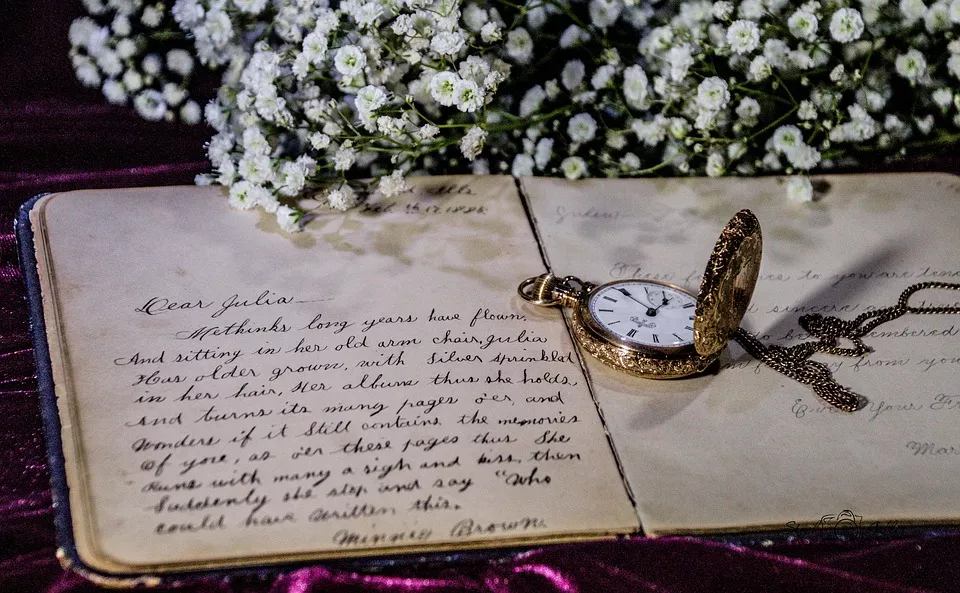 Feb 17, 1888
Dear Julia
Methinks long years have flown,
And sitting in her old arm chair, Julia
Has older grown, with Silver sprinkled
in her hair, Her album thus she holds,
And turns its many pages o'er, and
Wonders if it Still contains the memories
Of yore, as o'er these pages thus She
Runs with many a sigh and kiss, then
Suddenly she stop and say "Who
could have written this.
Minnie Brown
Julia
These f to you are
sincere
be remembered
from you
Ever Your